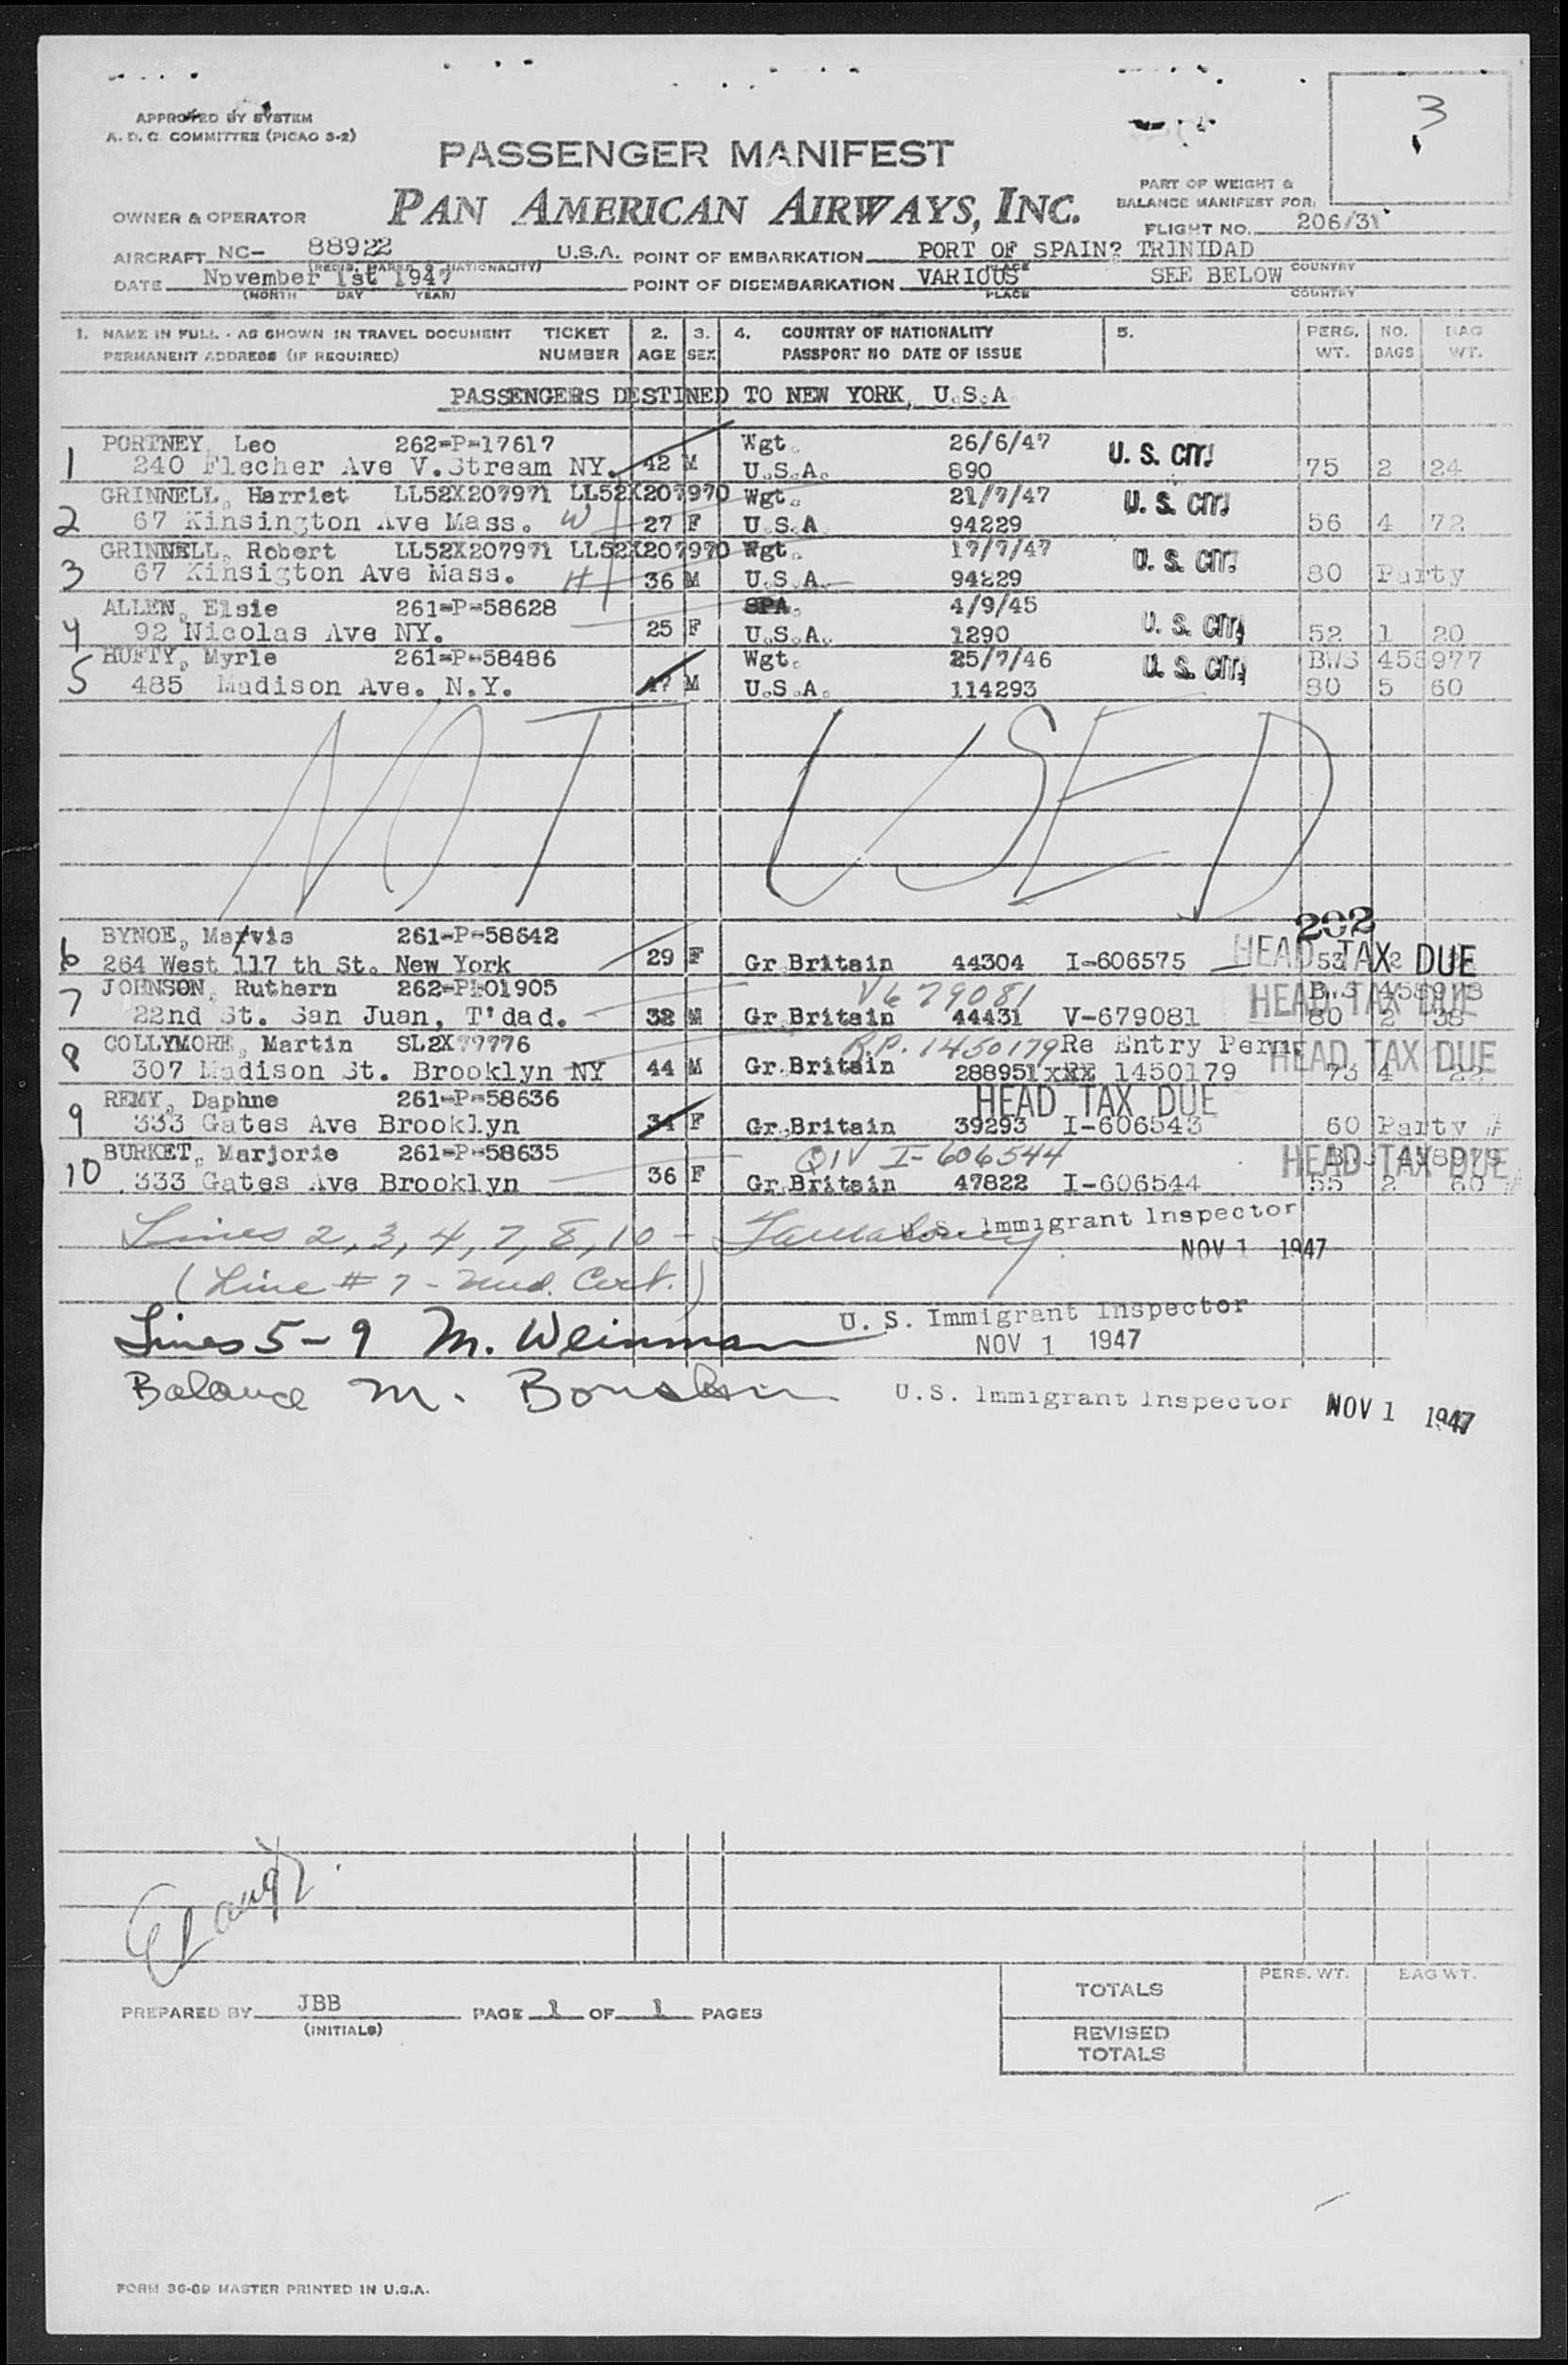 3
APPROVED BY SYSTEM
A. D. C. COMMITTEE (PICAO 3-2)
PASSENGER MANIFEST
PAN AMERICAN AIRWAYS, INC.
PART OF WEIGHT &
BALANCE MANIFEST FOR:
OWNER & OPERATOR
FLIGHT NO. 206/31
AIRCRAFT NC- 88922 U.S.A. POINT OF EMBARKATION PORT OF SPAIN? TRINIDAD
(REGIS. MARKS & NATIONALITY) PLACE COUNTRY
DATE Npvember 1st 1947 POINT OF DISEMBARKATION VARIOUS SEE BELOW
(MONTH DAY YEAR) PLACE COUNTRY
1. NAME IN FULL - AS SHOWN IN TRAVEL DOCUMENT TICKET 2. 3. 4. COUNTRY OF NATIONALITY 5. PERS. NO. BAG
PERMANENT ADDRESS (IF REQUIRED) NUMBER AGE SEX PASSPORT NO DATE OF ISSUE WT. BAGS WT.
PASSENGERS DESTINED TO NEW YORK, U.S.A
PORTNEY, Leo 262-P-17617 Wgt. 26/6/47 U. S. CIT.
1 240 Flecher Ave V.Stream NY. 42 M U.S.A. 890 75 2 24
GRINNELL, Harriet LL52X207971 LL52X207970 Wgt. 21/7/47 U. S. CIT.
2 67 Kinsington Ave Mass. W 27 F U.S.A 94229 56 4 72
GRINNELL, Robert LL52X207971 LL52X207970 Wgt. 17/7/47 U. S. CIT.
3 67 Kinsigton Ave Mass. H 36 M U.S.A. 94229 80 Party
ALLEN, Elsie 261-P-58628 SPA. 4/9/45 U. S. CIT.
4 92 Nicolas Ave NY. 25 F U.S.A. 1290 52 1 20
HUFTY, Myrle 261-P-58486 Wgt. 25/7/46 U. S. CIT. BWS 458977
5 485 Madison Ave. N.Y. 47 M U.S.A. 114293 80 5 60
NOT USED
202
BYNOE, Marvis 261-P-58642
6 264 West 117 th St. New York 29 F Gr.Britain 44304 I-606575 HEAD TAX DUE 53 2
JOHNSON, Ruthern 262-P-01905 V679081 HEAD TAX DUE
7 22nd St. San Juan, T'dad. 32 M Gr.Britain 44431 V-679081 80 2 38
COLLYMORE, Martin SL2X79776 R.P. 1450179 Re Entry Perm HEAD TAX DUE
8 307 Madison St. Brooklyn NY 44 M Gr.Britain 288951 1450179 73 4 22
REMY, Daphne 261-P-58636 HEAD TAX DUE
9 333 Gates Ave Brooklyn 34 F Gr.Britain 39293 I-606543 60 Party
BURKET, Marjorie 261-P-58635 QIV I-606544 HEAD TAX DUE
10 333 Gates Ave Brooklyn 36 F Gr.Britain 47822 I-606544 55 2 60
Lines 2, 3, 4, 7, 8, 10 - U.S. Immigrant Inspector
NOV 1 1947
(Line # 7 - Med. Cert.)
Lines 5-9 M. Weinman U. S. Immigrant Inspector
NOV 1 1947
Balance M. U.S. Immigrant Inspector NOV 1 1947
PERS. WT. BAG WT.
TOTALS
PREPARED BY JBB PAGE 1 OF 1 PAGES
(INITIALS)
REVISED
TOTALS
FORM 36-69 MASTER PRINTED IN U.S.A.